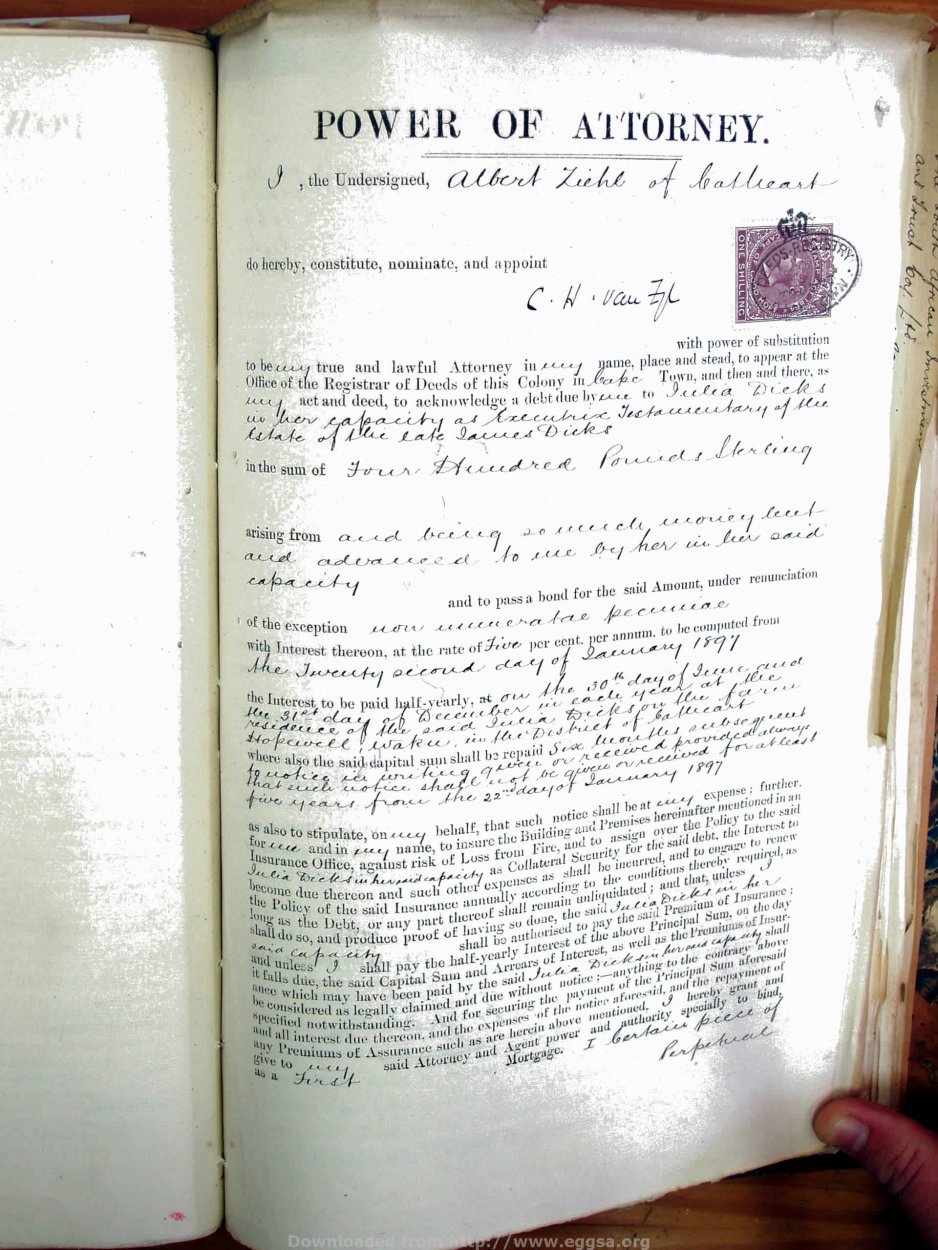 POWER OF ATTORNEY.
I, the Undersigned, Albert Ziehl of Cathcart
do hereby, constitute, nominate, and appoint
C. H. van Zyl
ONE SHILLING
DEEDS REGISTRY
with power of substitution
to be my true and lawful Attorney in my name, place and stead, to appear at the
Office of the Registrar of Deeds of this Colony in Cape Town, and then and there, as
my act and deed, to acknowledge a debt due by me to Julia Dicks
in her capacity as Executrix Testamentary of the
Estate of the late James Dicks
in the sum of Four Hundred Pounds Sterling
arising from and being so much money lent
and advanced to me by her in her said
capacity
and to pass a bond for the said Amount, under renunciation
of the exception non numeratae pecuniae
with Interest thereon, at the rate of Five per cent. per annum. to be computed from
the Twenty second day of January 1897
the Interest to be paid half-yearly, at on the 30th day of June and
the 31st day of December in each year at the
residence of the said Julia Dicks on the farm
Hopewell, Waku, in the District of Cathcart
where also the said capital sum shall be repaid Six Months subsequent
to notice in writing given or received provided always
that such notice shall not be given or received for at least
five years from the 22nd day of January 1897
as also to stipulate, on my behalf, that such notice shall be at my expense; further.
for me and in my name, to insure the Building and Premises hereinafter mentioned in an
Insurance Office, against risk of Loss from Fire, and to assign over the Policy to the said
Julia Dicks in her said capacity as Collateral Security for the said debt, the Interest to
become due thereon and such other expenses as shall be incurred, and to engage to renew
the Policy of the said Insurance annually according to the conditions thereby required, as
long as the Debt, or any part thereof shall remain unliquidated; and that, unless I
shall do so, and produce proof of having so done, the said Julia Dicks in her
said capacity shall be authorised to pay the said Premium of Insurance;
and unless I shall pay the half-yearly Interest of the above Principal Sum, on the day
it falls due, the said Capital Sum and Arrears of Interest, as well as the Premiums of Insur-
ance which may have been paid by the said Julia Dicks in her said capacity shall
be considered as legally claimed and due without notice;—anything to the contrary above
specified notwithstanding. And for securing the payment of the Principal Sum aforesaid
and all interest due thereon, and the expenses of the notice aforesaid, and the repayment of
any Premiums of Assurance such as are herein above mentioned, I hereby grant and
give to my said Attorney and Agent power and authority specially to bind,
as a First Mortgage. I Certain piece of
Perpetual
Downloaded from http://www.eggsa.org